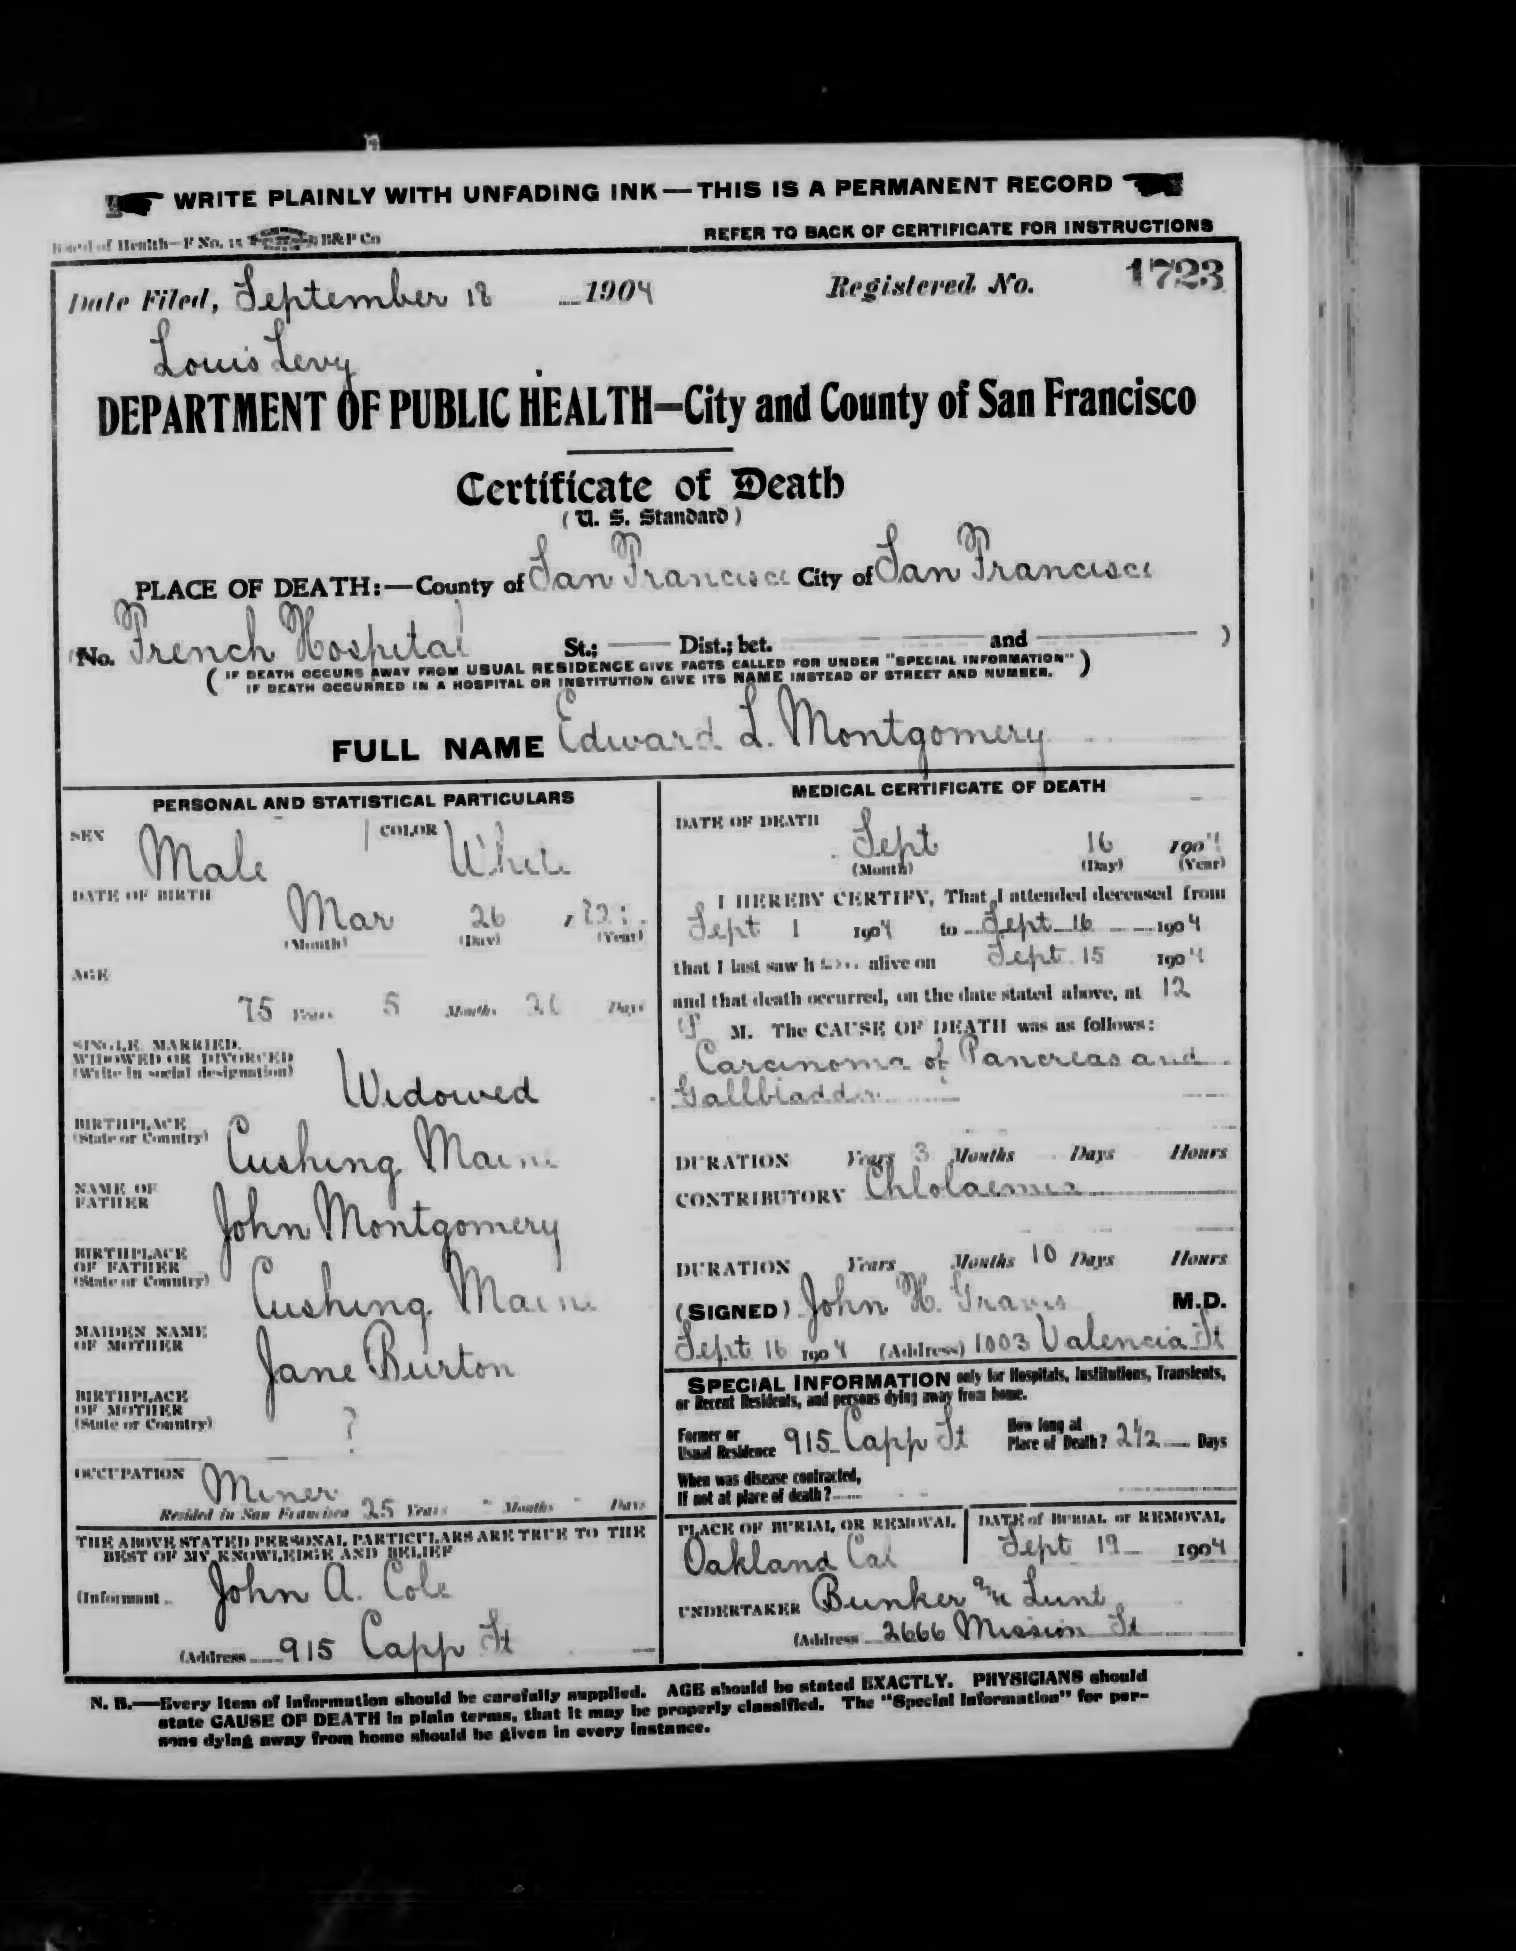 WRITE PLAINLY WITH UNFADING INK — THIS IS A PERMANENT RECORD
Board of Health—F No. 15 B&P Co
REFER TO BACK OF CERTIFICATE FOR INSTRUCTIONS
Date Filed, September 18 1904 Registered No. 1723
Louis Levy
DEPARTMENT OF PUBLIC HEALTH—City and County of San Francisco
Certificate of Death
( U. S. Standard )
PLACE OF DEATH:—County of San Francisco City of San Francisco
(No. French Hospital St.; —— Dist.; bet. —— and —— )
( IF DEATH OCCURS AWAY FROM USUAL RESIDENCE GIVE FACTS CALLED FOR UNDER "SPECIAL INFORMATION" )
IF DEATH OCCURRED IN A HOSPITAL OR INSTITUTION GIVE ITS NAME INSTEAD OF STREET AND NUMBER.
FULL NAME Edward L. Montgomery
PERSONAL AND STATISTICAL PARTICULARS
SEX Male COLOR White
DATE OF BIRTH
Mar 26
(Month) (Day) (Year)
AGE
75 Years 5 Months Days
SINGLE, MARRIED,
WIDOWED OR DIVORCED
(Write in social designation)
Widowed
BIRTHPLACE
(State or Country)
Cushing Maine
NAME OF
FATHER
John Montgomery
BIRTHPLACE
OF FATHER
(State or Country)
Cushing Maine
MAIDEN NAME
OF MOTHER
Jane Burton
BIRTHPLACE
OF MOTHER
(State or Country)
?
OCCUPATION Miner
Resided in San Francisco 25 Years " Months " Days
THE ABOVE STATED PERSONAL PARTICULARS ARE TRUE TO THE
BEST OF MY KNOWLEDGE AND BELIEF
(Informant John A. Cole
(Address 915 Capp St
MEDICAL CERTIFICATE OF DEATH
DATE OF DEATH
Sept 16 1904
(Month) (Day) (Year)
I HEREBY CERTIFY, That I attended deceased from
Sept 1 1904 to Sept 16 1904
that I last saw h alive on Sept. 15 1904
and that death occurred, on the date stated above, at 12
P M. The CAUSE OF DEATH was as follows:
Carcinoma of Pancreas and
Gallbladder
DURATION Years 3 Months Days Hours
CONTRIBUTORY Chlolaemia
DURATION Years Months 10 Days Hours
(SIGNED) John H. Graves M.D.
Sept 16 1904 (Address) 1003 Valencia St
SPECIAL INFORMATION only for Hospitals, Institutions, Transients,
or Recent Residents, and persons dying away from home.
Former or
Usual Residence 915 Capp St
How long at
Place of Death? 2 1/2 Days
When was disease contracted,
If not at place of death?
PLACE OF BURIAL OR REMOVAL
Oakland Cal
DATE of BURIAL or REMOVAL
Sept 19 1904
UNDERTAKER Bunker & Lunt
(Address 2666 Mission St
N. B.—Every item of information should be carefully supplied. AGE should be stated EXACTLY. PHYSICIANS should
state CAUSE OF DEATH in plain terms, that it may be properly classified. The "Special Information" for per-
sons dying away from home should be given in every instance.